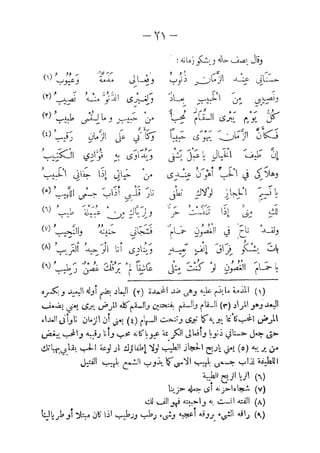 — ٢١ —
وقال يصف حاله ويشكو زمانه :
حسناتي عند الزمان ذنوب وفعالي مذمة وعيوب (١)
ونصيبي من الحبيب بعاد ولغيري الدنو منه نصيب (٢)
كل يوم يبري السقام محباً من حبيب وما لسقمي طبيب (٣)
فكأن الزمان يهوى حبيباً وكأني على الزمان رقيب (٤)
إن طيف الخيال يا عبل يشفي ويداوى به فؤادي الكئيب
وهلاكي في الحب أهون عندي من حياتي إذا جفاني الحبيب
يا نسيم الحجاز لولاك تطفي نار قلبي أذاب جسمي اللهيب (٥)
لك مني إذا تنفست حر ولرياك من عبيلة طيب (٦)
ولقد ناح في الغصون حمام فشجاني حنينه والنحيب (٧)
بات يشكو فراق إلف بعيد وينادي أنا الوحيد الغريب (٨)
يا حمام الغصون لو كنت مثلي عاشقاً لم يرقك غصن رطيب (٩)
(١) المذمة ما يذم عليه وهى ضد المحمدة (٢) البعاد بضم أوله البعيد وبكسره
البعد وهو المراد (٣) السقام والسقم بفتحتين والسقم كله المرض يبرى يعني يضعف
المرض المحب كأنما يبريه كما تبرى وتنحت السهام (٤) يعني أن الزمان ناوأني العداء
حتى جعل حسناتي ذنوبا وأفعالى الكريمة عيوبا كأنه محب وأنا رقيبه والمحب يبغض
من يرقبه (٥) يعنى ياريح الحجاز الطيب لولا إطفاؤك نار لوعة الحب بقلبي بهباتك
اللطيفة لذاب جسمى بلهيب الاسى كما يذوب الشمع بلهيب الفتيل
(٦) الريا الريح الطيبة
(٧) شجاه احزنه أى جعله حزينا
(٨) الفته انست به واحببته فهو الف لك
(٩) راقه الشىء يروقه أعجبه وشىء رطب ورطيب اذا كان مبتلا أو طريا لينا